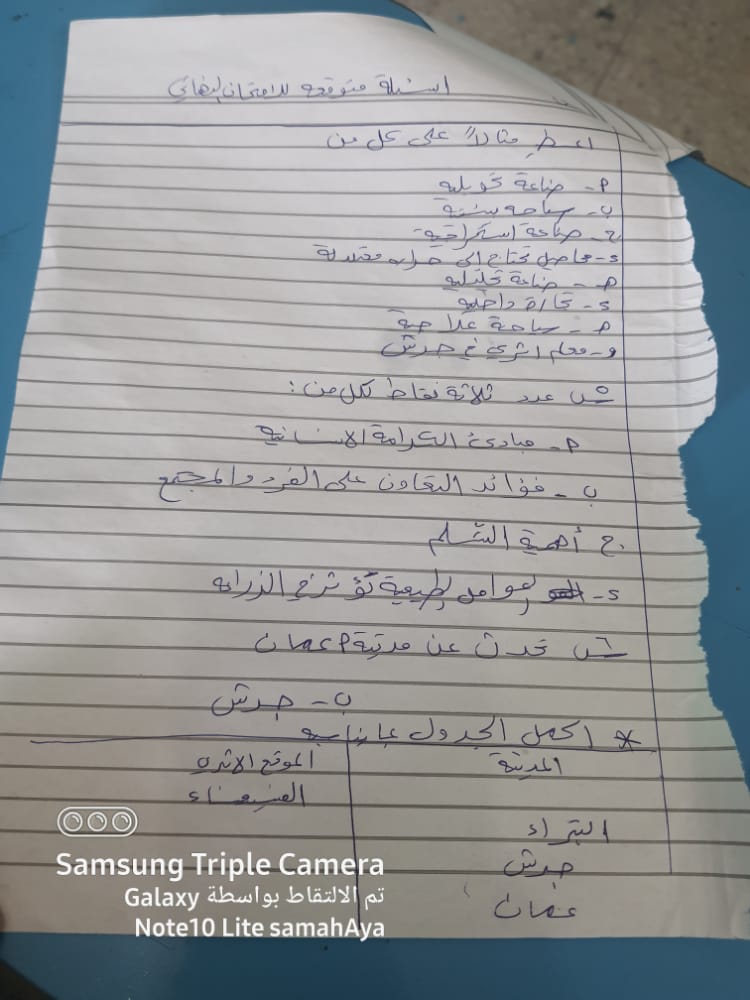 اسئلة متوقعه للامتحان النهائي
اعطِ مثالاً على كل من
أ- صناعة تحويليه
ب- سياحه بيئية
ج- صناعة استخراجية
د- محاصيل تحتاج الى حراره معتدلة
هـ - صناعة تحليليه
د- تجارة داخليه
هـ - سياحة علاجية
و- معلم اثري في جرش
س عدد ثلاثة نقاط لكل من :
أ- مبادئ الكرامة الانسانية
ب - فوائد التعاون على الفرد والمجتمع
ج. أهمية السّلم
د- عوامل طبيعية تؤثر في الزراعه
س تحدث عن مدينة أ عمان
ب- جرش
* اكمل الجدول بما يناسبه
المدينة الموقع الاثري
الفسيفساء
البتراء
جرش
عمان
Samsung Triple Camera
تم الالتقاط بواسطة Galaxy
Note10 Lite samahAya